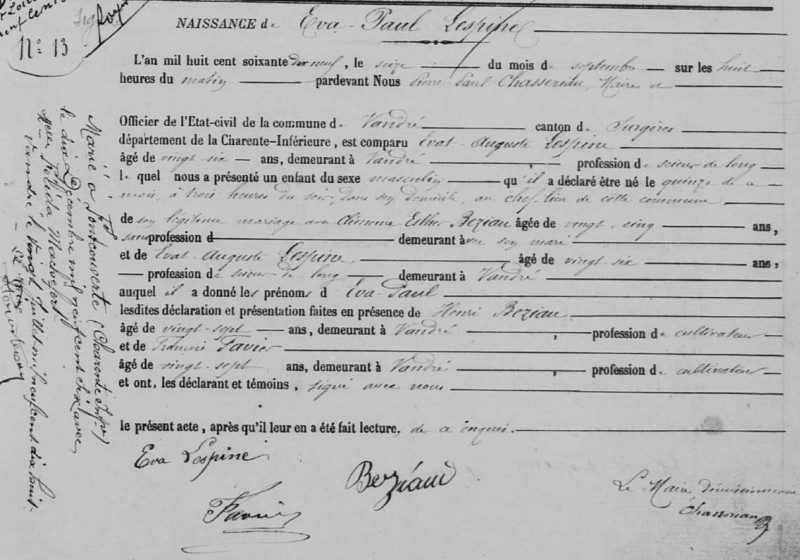 N° 13
NAISSANCE de Eva-Paul Lespine
L'an mil huit cent soixante dix neuf, le seize du mois de septembre sur les huit
heures du matin pardevant Nous Pierre Paul Chasseriau, Maire et
Officier de l'Etat-civil de la commune de Vandré canton de Surgères
département de la Charente-Inférieure, est comparu Evat-Auguste Lespine
âgé de vingt-six ans, demeurant à Vandré, profession de scieur de long
lequel nous a présenté un enfant du sexe masculin qu'il a déclaré être né le quinze de ce
mois, à trois heures du soir, dans son domicile, au chef lieu de cette commune
de son légitime mariage avec Clémence Esther Beziau âgée de vingt-cinq ans,
sans profession demeurant avec son mari
et de Evat-Auguste Lespine âgé de vingt six ans,
profession de scieur de long demeurant à Vandré
auquel il a donné les prénoms d'Eva-Paul
lesdites déclaration et présentation faites en présence de Henri Beziau
âgé de vingt-sept ans, demeurant à Vandré, profession de cultivateur
et de François Favier
âgé de vingt-sept ans, demeurant à Vandré, profession de cultivateur
et ont, les déclarant et témoins, signé avec nous
le présent acte, après qu'il leur en a été fait lecture, de ce enquis.
Eva Lespine
Beziaud
Favier
Le Maire
Chasseriau
Marié à Fontcouverte (Charente Infre)
le dix Décembre mil neuf cent dix avec
Melle Nélida
Vandré le vingt Juillet mil neuf cent dix huit.
Le Maire